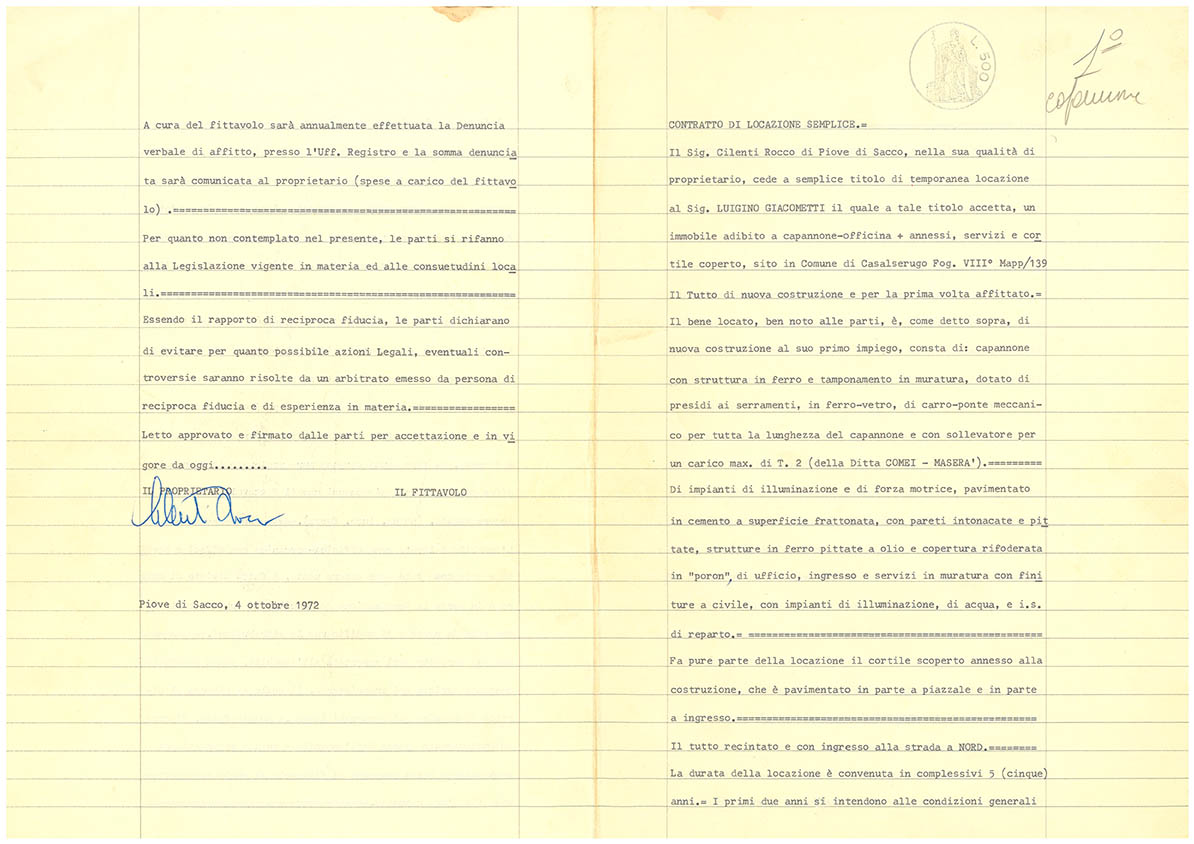 A cura del fittavolo sarà annualmente effettuata la Denuncia
verbale di affitto, presso l'Uff. Registro e la somma denuncia
ta sarà comunicata al proprietario (spese a carico del fittavo
lo) .=========================================================
Per quanto non contemplato nel presente, le parti si rifanno
alla Legislazione vigente in materia ed alle consuetudini loca
li.===========================================================
Essendo il rapporto di reciproca fiducia, le parti dichiarano
di evitare per quanto possibile azioni Legali, eventuali con-
troversie saranno risolte da un arbitrato emesso da persona di
reciproca fiducia e di esperienza in materia.=================
Letto approvato e firmato dalle parti per accettazione e in vi
gore da oggi.........
IL PROPRIETARIO IL FITTAVOLO
Piove di Sacco, 4 ottobre 1972
L. 500
1º
capannone
CONTRATTO DI LOCAZIONE SEMPLICE.=
Il Sig. Cilenti Rocco di Piove di Sacco, nella sua qualità di
proprietario, cede a semplice titolo di temporanea locazione
al Sig. LUIGINO GIACOMETTI il quale a tale titolo accetta, un
immobile adibito a capannone-officina + annessi, servizi e cor
tile coperto, sito in Comune di Casalserugo Fog. VIII° Mapp/139
Il Tutto di nuova costruzione e per la prima volta affittato.=
Il bene locato, ben noto alle parti, è, come detto sopra, di
nuova costruzione al suo primo impiego, consta di: capannone
con struttura in ferro e tamponamento in muratura, dotato di
presidi ai serramenti, in ferro-vetro, di carro-ponte meccani-
co per tutta la lunghezza del capannone e con sollevatore per
un carico max. di T. 2 (della Ditta COMEI - MASERA').=========
Di impianti di illuminazione e di forza motrice, pavimentato
in cemento a superficie frattonata, con pareti intonacate e pit
tate, strutture in ferro pittate a olio e copertura rifoderata
in "poron", di ufficio, ingresso e servizi in muratura con fini
ture a civile, con impianti di illuminazione, di acqua, e i.s.
di reparto.= =================================================
Fa pure parte della locazione il cortile scoperto annesso alla
costruzione, che è pavimentato in parte a piazzale e in parte
a ingresso.==================================================
Il tutto recintato e con ingresso alla strada a NORD.========
La durata della locazione è convenuta in complessivi 5 (cinque)
anni.= I primi due anni si intendono alle condizioni generali